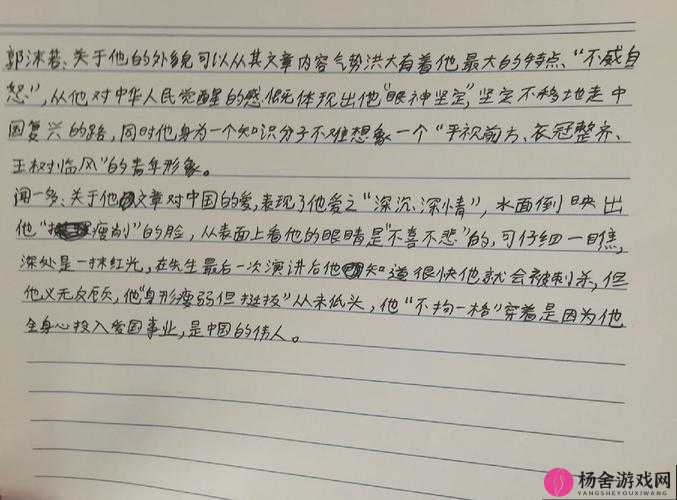 郭沫若:关于他的外貌可以从其文章内容气势洪大有着他最大的特点,“不威自
怒”,从他对中华人民觉醒的感慨无体现出他“眼神坚定”,坚定不移地走中
国复兴的路,同时他身为一个知识分子不难想象一个“平视前方、衣冠整齐、
玉树临风”的青年形象。
闻一多:关于他文章对中国的爱,表现了他爱之“深沉、深情”,水面倒映出
他“瘦削”的脸,从表面上看他的眼睛是“不喜不悲”的,可仔细一瞧,
深处是一抹红光,在先生最后一次演讲后他知道很快他就会被刺杀,但
他义无反顾,他“身形瘦弱但挺拔”从未低头,他“不拘一格”穿着是因为他
全身心投入爱国事业,是中国的伟人。
杨舍游戏网
YANGSHEYOUXIWANG